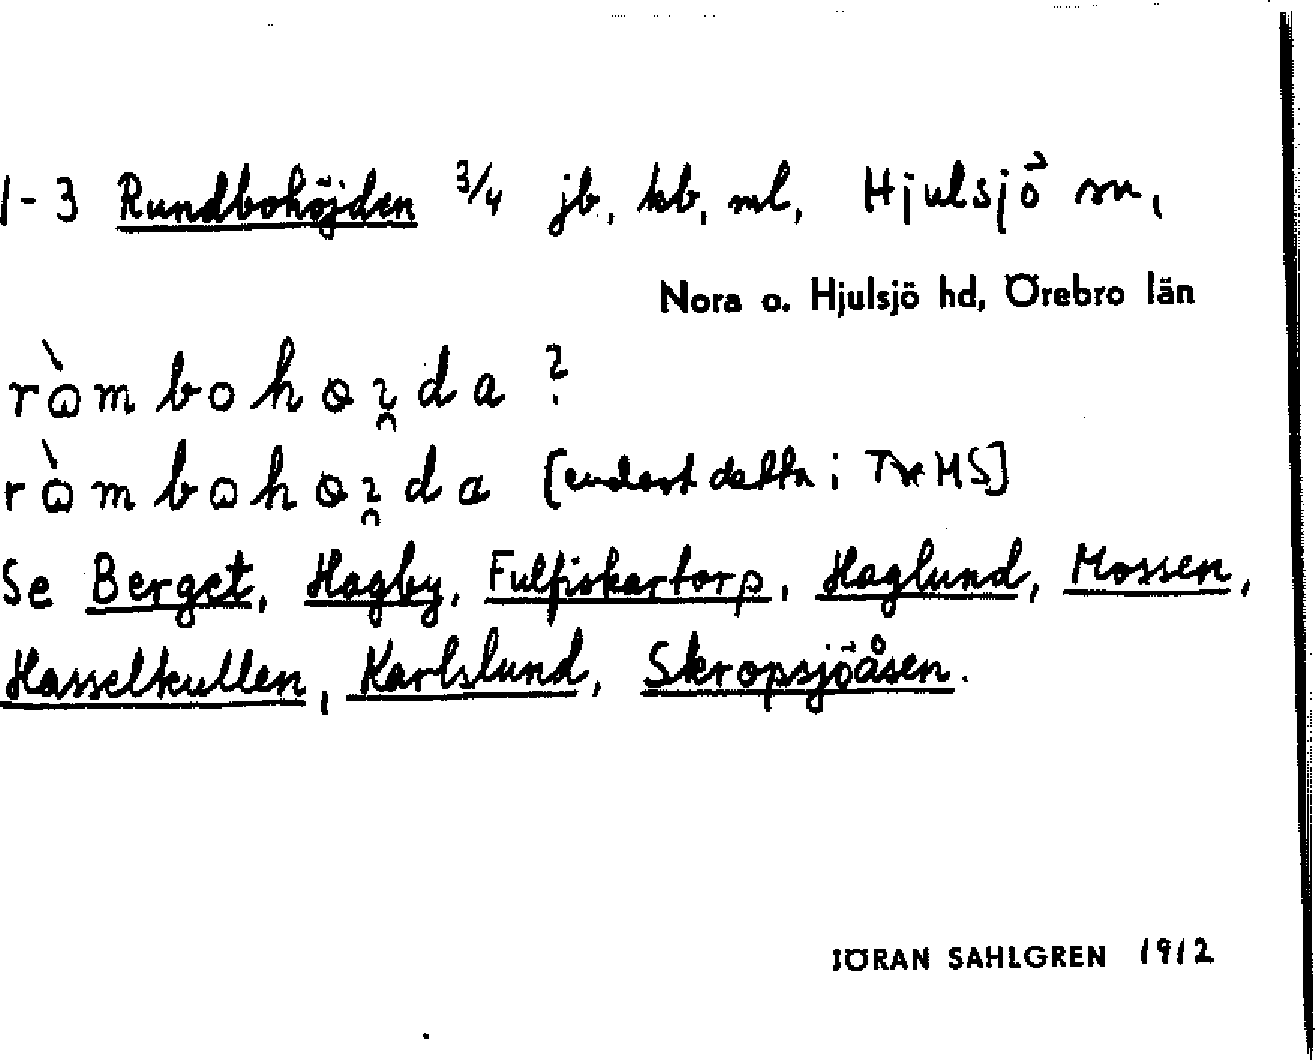 1-3 Rundbohöjden 3/4 jb, kb, ml, Hjulsjö sn,
Nora o. Hjulsjö hd, Örebro län
[endast detta i
Se Berget, Hagby, Fulfiskartorp, Haglund, Mossen,
Hasselkullen, Karlslund, Skropsjöåsen.
JÖRAN SAHLGREN 1912